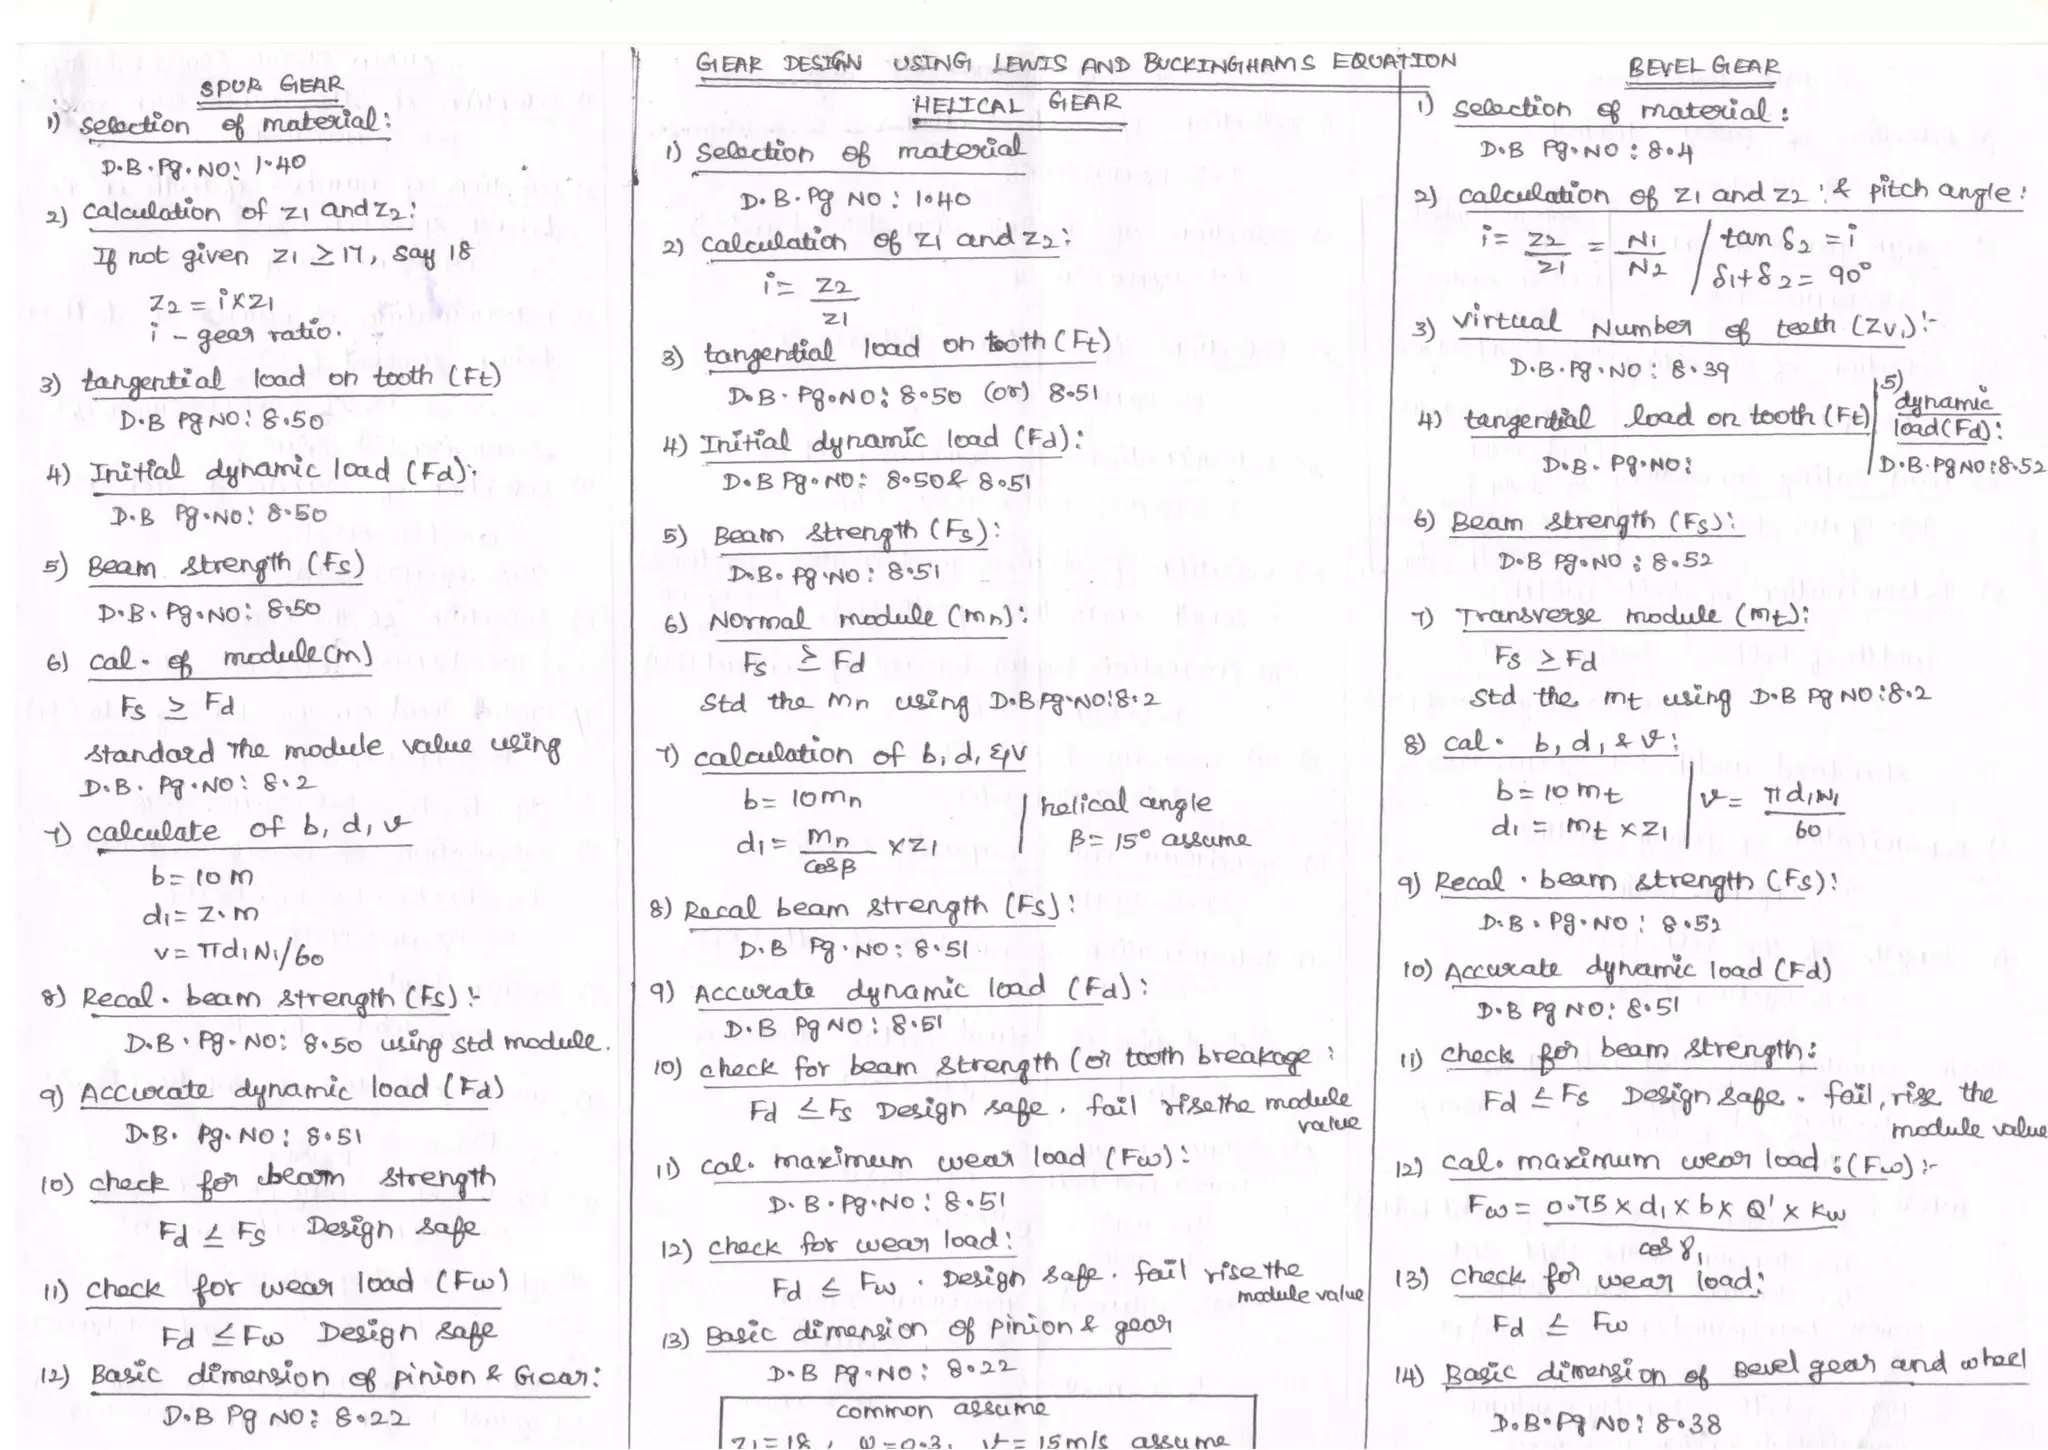 GEAR DESIGN USING LEWIS AND BUCKINGHAMS EQUATION
SPUR GEAR
1) Selection of material:
D.B. Pg. NO: 1.40
2) Calculation of Z1 and Z2:
If not given Z1 ≥ 17, say 18
Z2 = i x Z1
i - gear ratio.
3) tangential load on tooth (Ft)
D.B Pg NO: 8.50
4) Initial dynamic load (Fd):
D.B Pg. NO: 8.50
5) Beam strength (Fs)
D.B. Pg. NO: 8.50
6) cal. of module (m)
Fs ≥ Fd
standard The module value using
D.B. Pg. NO: 8.2
7) calculate of b, d, v
b = 10 m
d1 = Z. m
v = πd1N1/60
8) Recal. beam strength (Fs):
D.B. Pg. NO: 8.50 using std module.
9) Accurate dynamic load (Fd)
D.B. Pg. NO: 8.51
10) check for beam strength
Fd ≤ Fs Design safe
11) check for wear load (Fw)
Fd ≤ Fw Design safe
12) Basic dimension of pinion & Gear:
D.B Pg NO: 8.22
HELICAL GEAR
1) Selection of material
D.B. Pg NO: 1.40
2) Calculation of Z1 and Z2:
i = Z2
Z1
3) tangential load on tooth (Ft)
D.B. Pg. NO: 8.50 (or) 8.51
4) Initial dynamic load (Fd):
D.B Pg. NO: 8.50 & 8.51
5) Beam strength (Fs):
D.B. Pg. NO: 8.51
6) Normal module (mn):
Fs ≥ Fd
Std the mn using D.B Pg. NO: 8.2
7) calculation of b, d, & v
b = 10 mn | helical angle
d1 = mn x Z1 | β = 15° assume
cosβ
8) Recal beam strength (Fs):
D.B Pg. NO: 8.51
9) Accurate dynamic load (Fd):
D.B Pg NO: 8.51
10) check for beam strength (or tooth breakage:
Fd ≤ Fs Design safe. fail rise the module
value
11) cal. maximum wear load (Fw):
D.B. Pg. NO: 8.51
12) check for wear load:
Fd ≤ Fw. Design safe. fail rise the
module value
13) Basic dimension of pinion & gear
D.B Pg. NO: 8.22
common assume
Z1 = 18, ψ = 0.3, v = 15 m/s assume
BEVEL GEAR
1) Selection of material:
D.B Pg. NO: 8.4
2) calculation of Z1 and Z2: & pitch angle:
i = Z2 = N1 / tan δ2 = i
Z1 N2 / δ1+δ2 = 90°
3) virtual Number of teeth (Zv1):-
D.B. Pg. NO: 8.39
4) tangential load on tooth (Ft)
D.B. Pg. NO:
5) dynamic
load (Fd):
D.B. Pg NO: 8.52
6) Beam strength (Fs):
D.B Pg. NO: 8.52
7) Transverse module (mt):
Fs ≥ Fd
Std the mt using D.B Pg NO: 8.2
8) cal. b, d, & v:
b = 10 mt | v = πd1N1
d1 = mt x Z1 | 60
9) Recal. beam strength (Fs):
D.B. Pg. NO: 8.52
10) Accurate dynamic load (Fd)
D.B Pg NO: 8.51
11) check for beam strength:
Fd ≤ Fs Design safe. fail, rise the
module value
12) cal. maximum wear load: (Fw):-
Fw = 0.75 x d1 x b x Q' x kw
cos γ1
13) check for wear load:
Fd ≤ Fw
14) Basic dimension of Bevel gear and wheel
D.B. Pg NO: 8.38